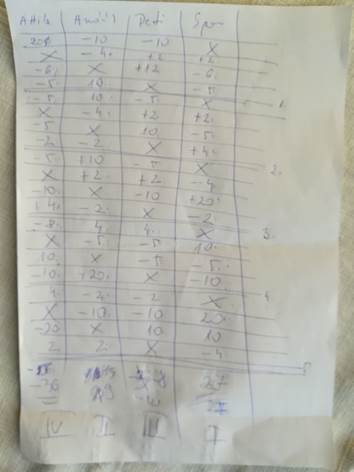 Attila Anikó Peti Spor
20. -10 -10 X
X -4. +2 +2
-6. X +12 -6.
-5 10 X -5
-5. 10. -5. X 1.
X -4. +2 +2.
-5 X 10. -5.
-2 -2 X +4.
-5. +10 -5. X 2.
X +2. +2 -4
-10. X -10 +20.
+4. -2. X -2.
-8. 4 4. X 3.
X -5. -5 10.
10. X -5 -5.
-10. +20. X -10.
4. -2. -2 X 4
X -10. -10 20.
-20 X 10 10
2 2. X -4
27
-36 19 -10 27
IV II III I